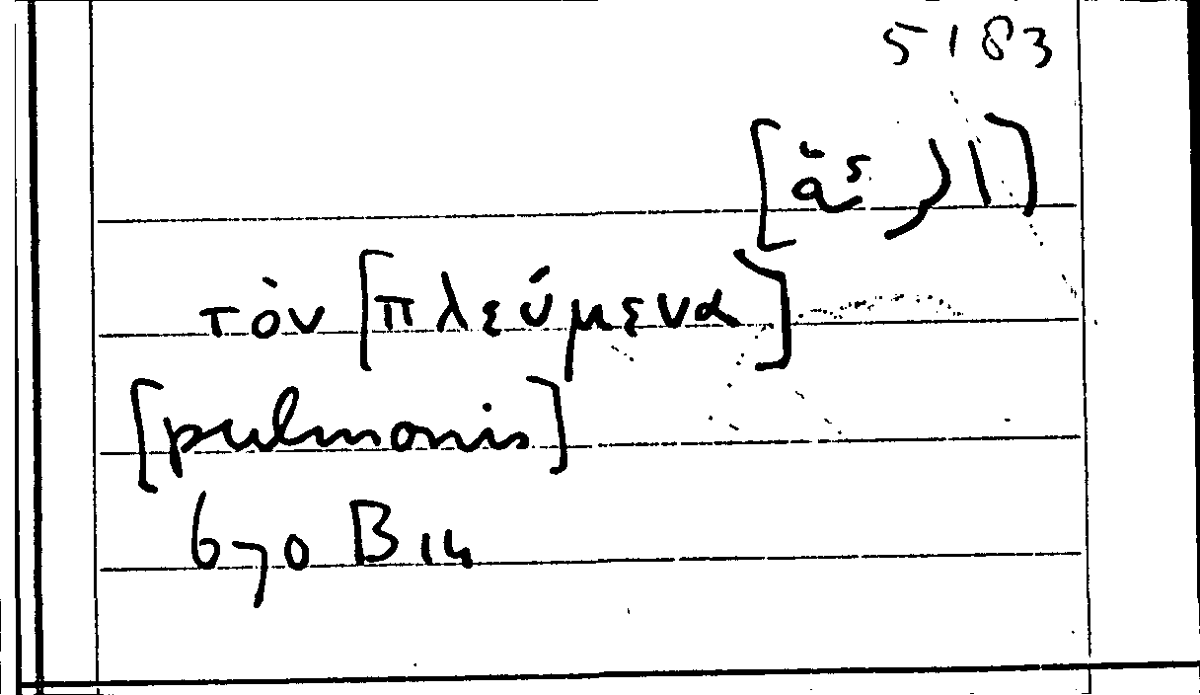 5183
[الرئة]
τὸν [πλεύμενα]
[pulmonis]
670 B 14